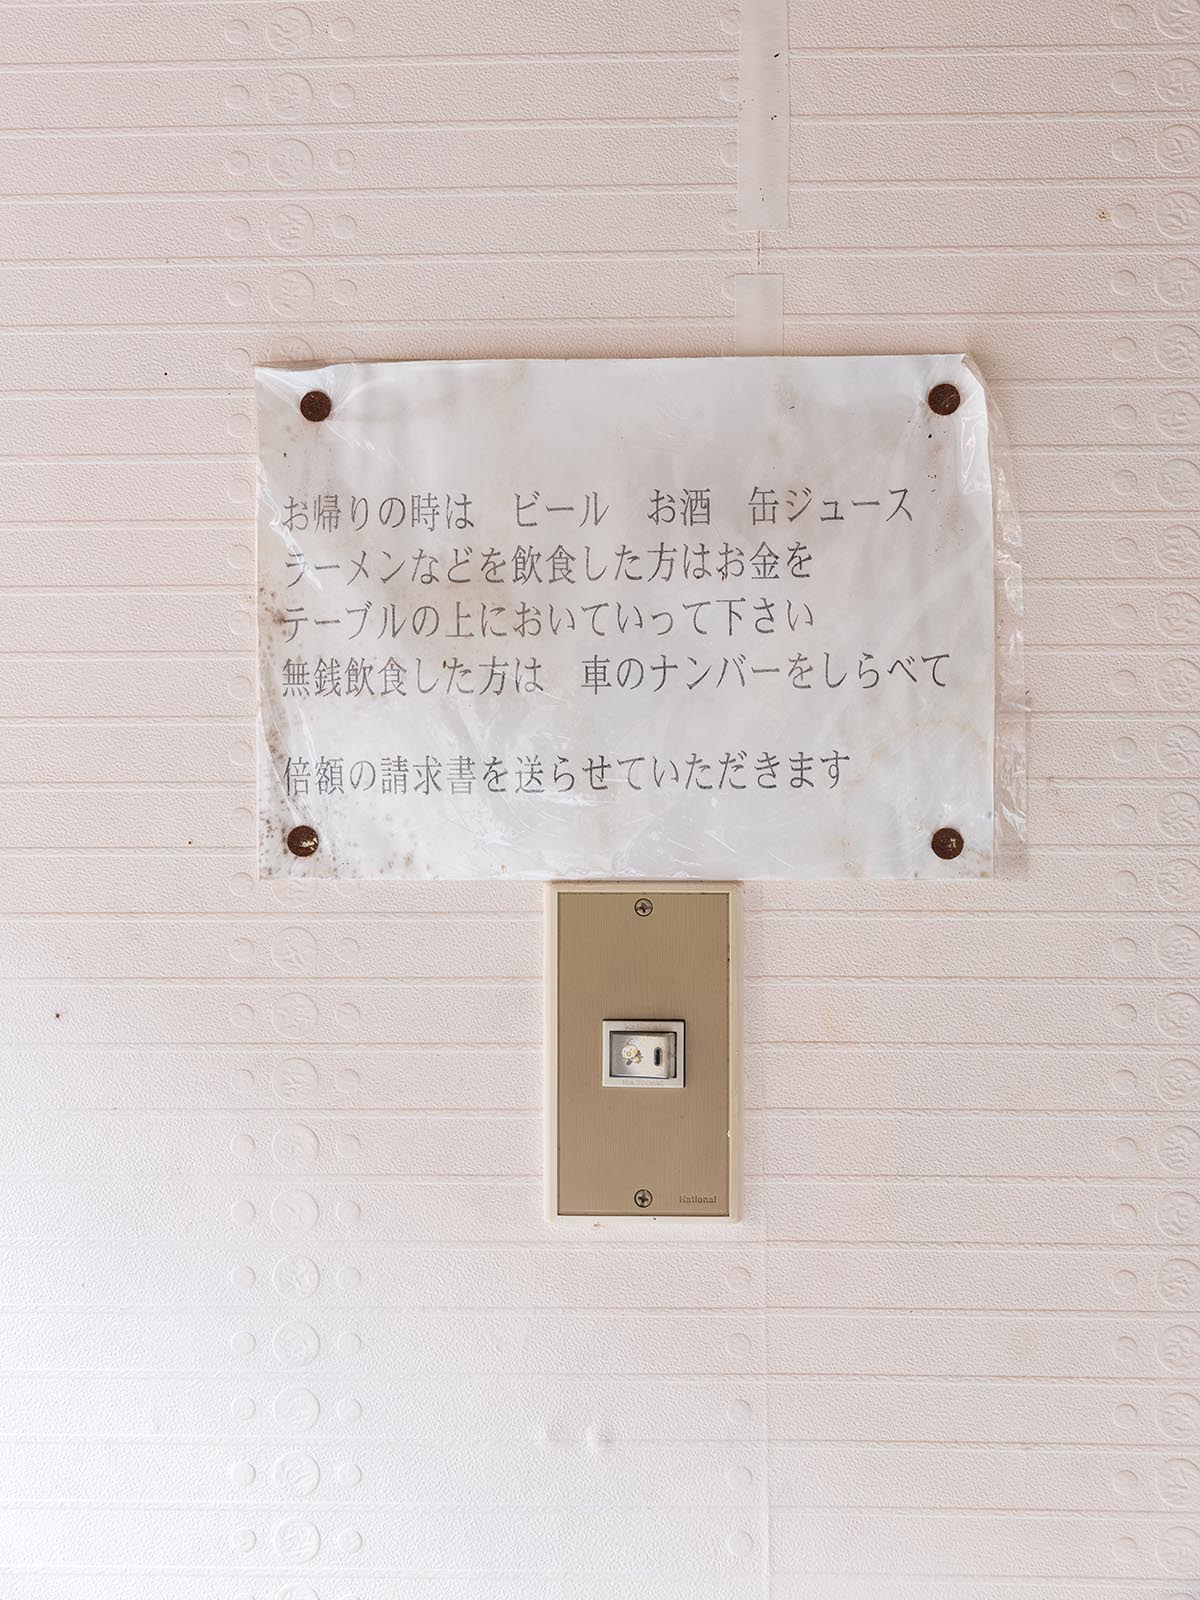 お帰りの時は　ビール　お酒　缶ジュース
ラーメンなどを飲食した方はお金を
テーブルの上においていって下さい
無銭飲食した方は　車のナンバーをしらべて
倍額の請求書を送らせていただきます
National